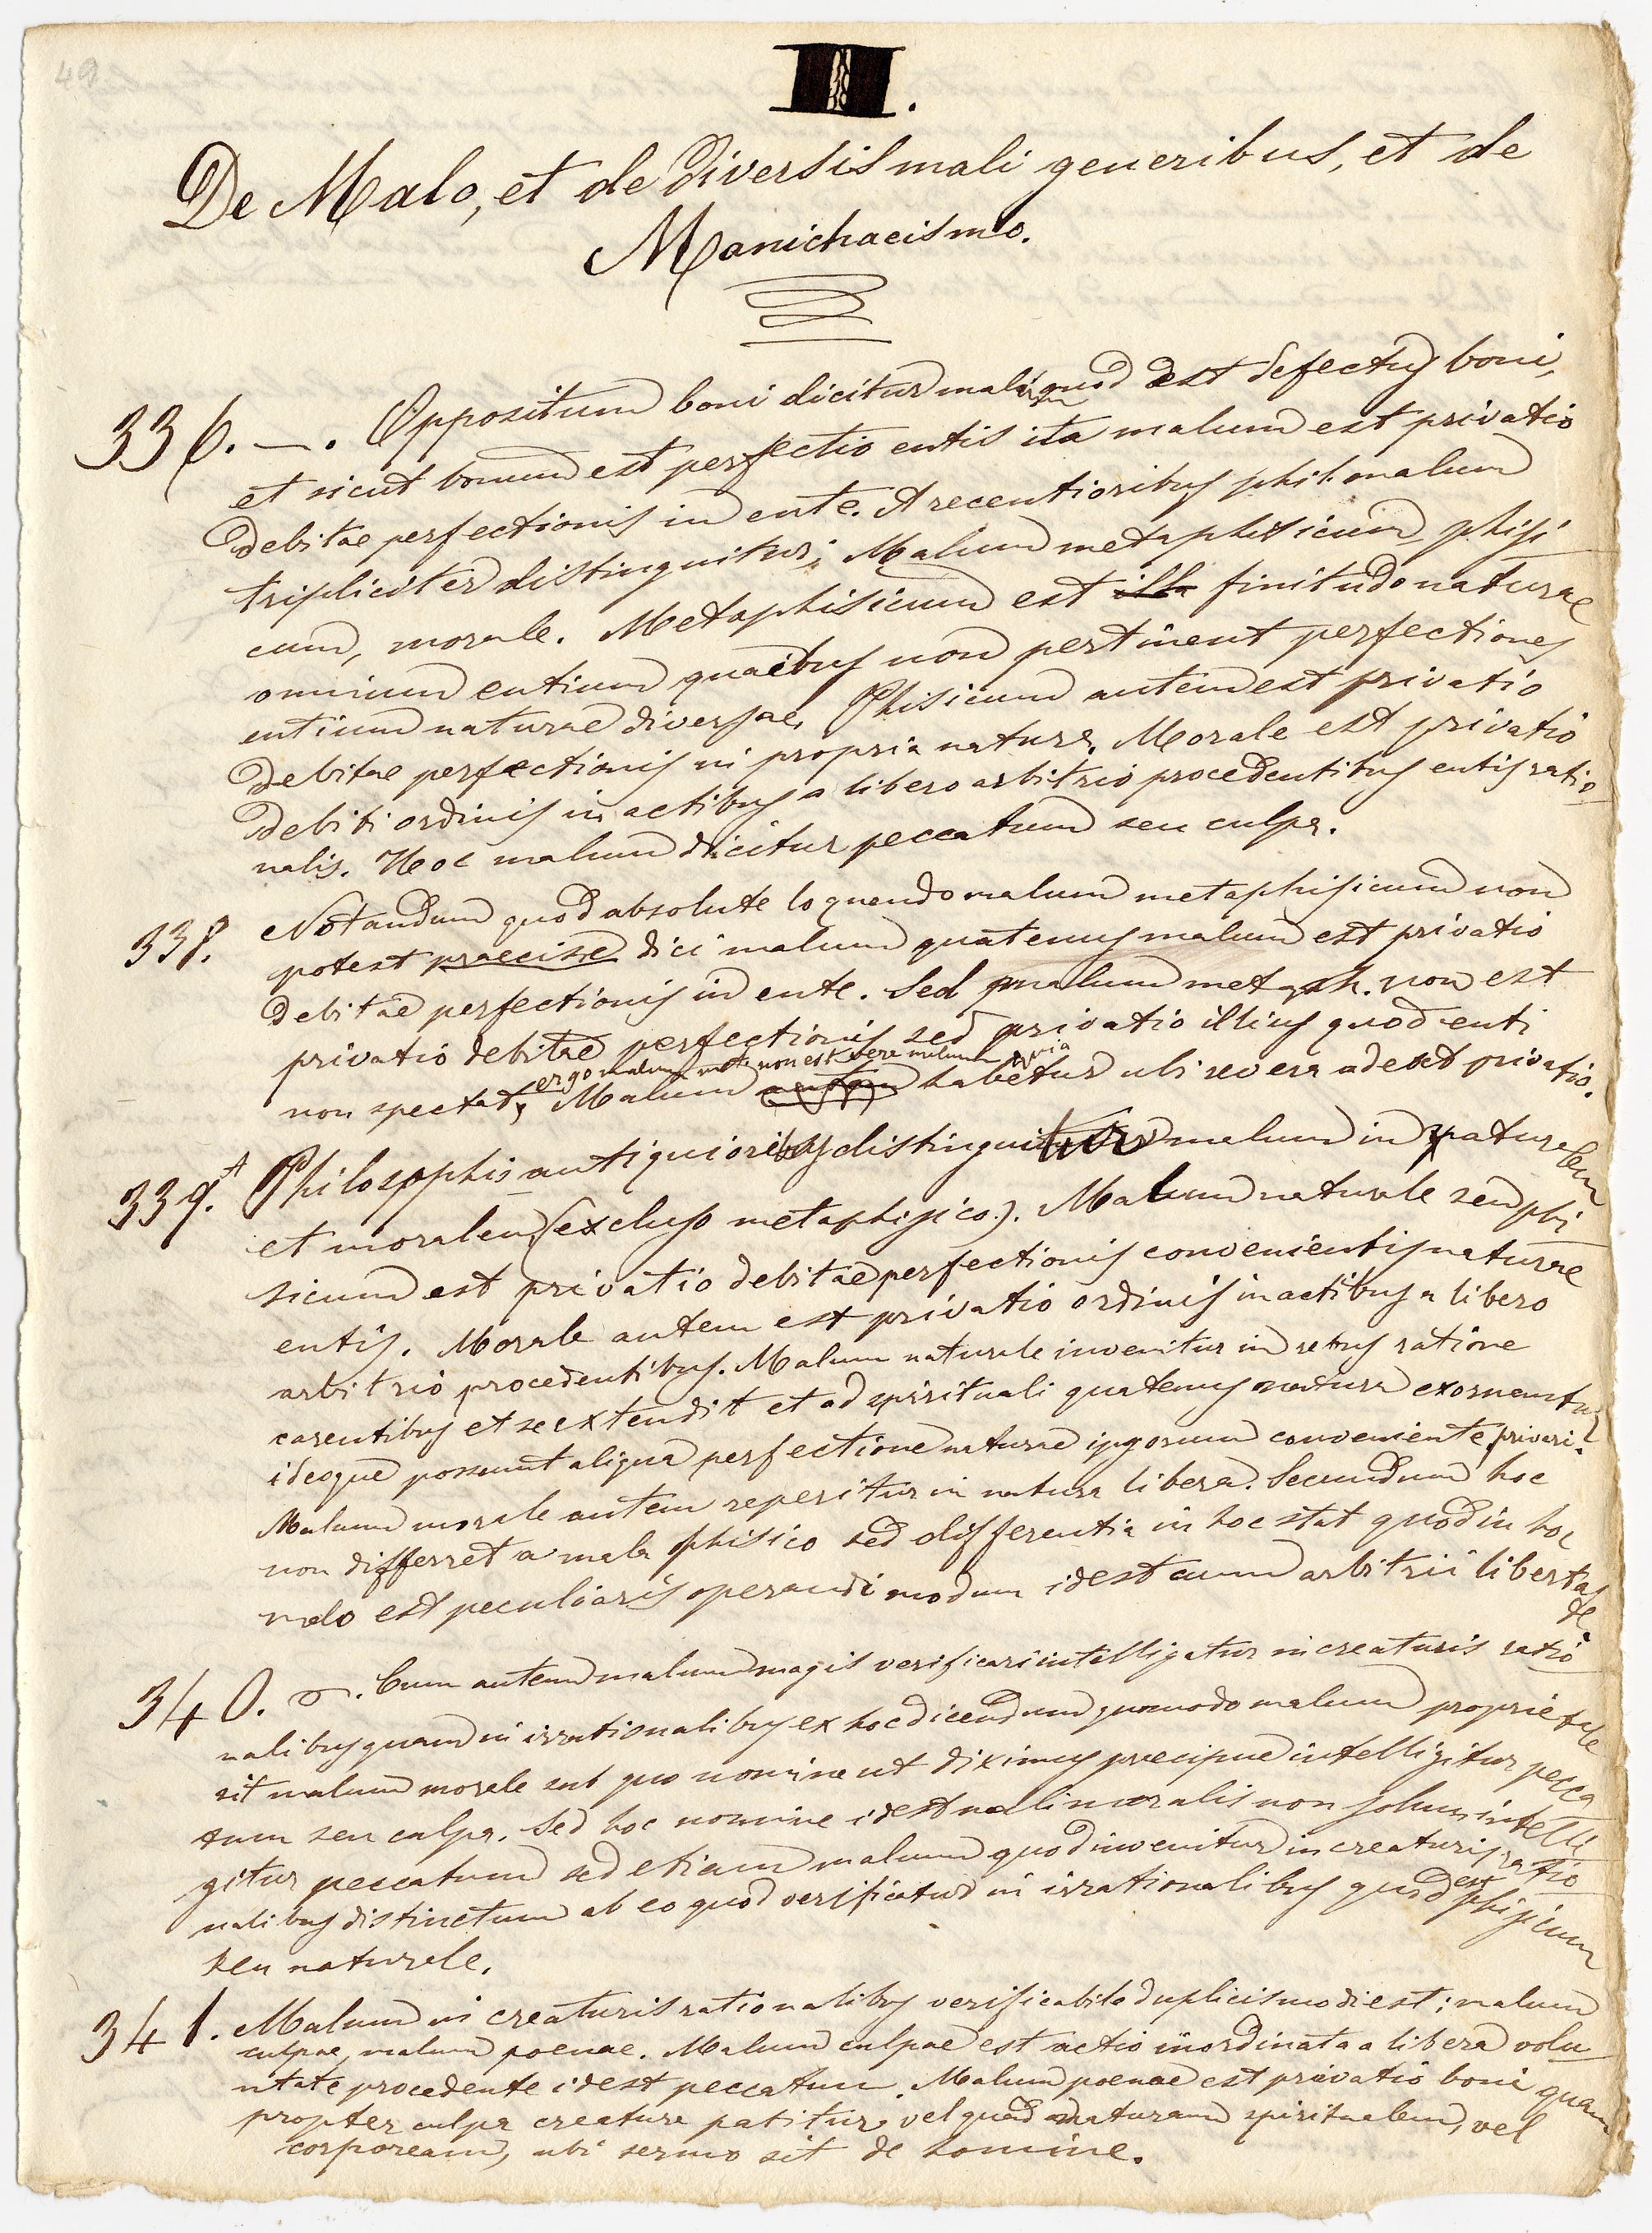 49
II.
De Malo, et de diversis mali generibus, et de
Manichaeismo.
336. —. Oppositum boni dicitur malum quod est defectus boni,
et sicut bonum est perfectio entis ita malum est privatio
debitae perfectionis in ente. A recentioribus phil. malum
tripliciter distinguitur; Malum metaphisicum, phisi
cum, morale. Metaphisicum est illa finitudo naturae
omnium entium quibus non pertinent perfectiones
entium naturae diversae. Phisicum autem est privatio
debitae perfectionis in propria natura. Morale est privatio
debiti ordinis in actibus a libero arbitrio procedentibus entis ratio
nalis. Hoc malum dicitur peccatum seu culpa.
338. Notandum quod absolute loquendo malum metaphisicum non
potest praecise dici malum quatenus malum est privatio
debitae perfectionis in ente. Sed malum metaph. non est
privatio debitae perfectionis sed privatio illius quod enti
ergo malum met. non est vere malum quia
non spectat, Malum autem habetur ubi revera adest privatio.
339. A Philosophis antiquioribus distinguitur malum in naturalem
et moralem (excluso metaphisico). Malum naturale seu phi
sicum est privatio debitae perfectionis convenientis naturae
entis. Morale autem est privatio ordinis in actibus a libero
arbitrio procedentibus. Malum naturale invenitur in rebus ratione
carentibus et se extendit et ad spirituali quatenus natura exornantur
ideoque possunt aliqua perfectione naturae ipsorum conveniente privari.
Malum morale autem reperitur in natura libera. Secundum hoc
non differret a malo phisico sed differentia in hoc stat quod in hoc
malo est peculiaris operandi modum idest cum arbitrii libertate.
340. Cum autem malum magis verificari intelligatur in creaturis ratio
nalibus quam in irrationalibus ex hoc dicendum quomodo malum proprie tale
sit malum morale sub quo nomine ut diximus praecipue intelligitur pecca
tum seu culpa. Sed hoc nomine idest mali moralis non solum intelli
gitur peccatum sed etiam malum quod invenitur in creaturis ratio
nalibus distinctum ab eo quod verificatur in irrationalibus quod est phisicum
seu naturale.
341. Malum in creaturis rationalibus verificabile duplicis modi est; malum
culpae, malum poenae. Malum culpae est actio inordinata a libera volu
ntate procedente idest peccatum. Malum poenae est privatio boni quam
propter culpa creatura patitur vel quoad naturam spiritualem, vel
corpoream, ubi sermo sit de homine.